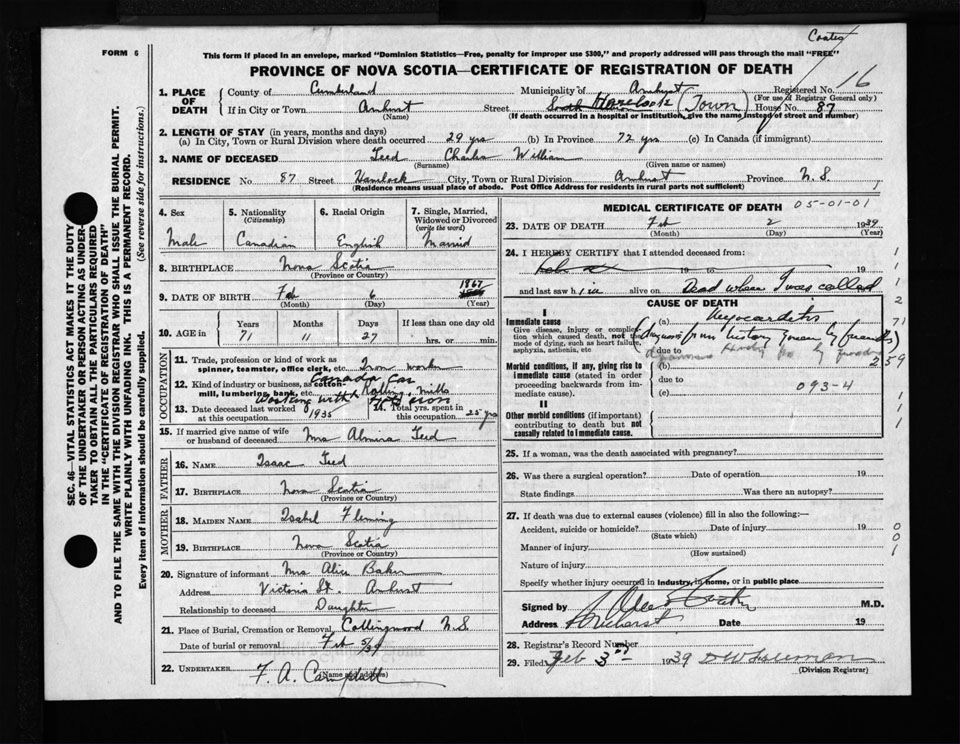 Coates
FORM 6
This form if placed in an envelope, marked "Dominion Statistics—Free, penalty for improper use $300," and properly addressed will pass through the mail "FREE"
PROVINCE OF NOVA SCOTIA—CERTIFICATE OF REGISTRATION OF DEATH
16
1. PLACE OF DEATH
County of Cumberland Municipality of Amherst Registered No.
(For use of Registrar General only)
If in City or Town Amherst Street (Town) House No. 87
(Name) (If death occurred in a hospital or institution, give the name instead of street and number)
2. LENGTH OF STAY (in years, months and days)
(a) In City, Town or Rural Division where death occurred 29 yrs (b) In Province 72 yrs (c) In Canada (if immigrant)
3. NAME OF DECEASED Teed Charles William
(Surname) (Given name or names)
RESIDENCE No. 87 Street City, Town or Rural Division Amherst Province N.S.
(Residence means usual place of abode. Post Office Address for residents in rural parts not sufficient)
4. Sex 5. Nationality 6. Racial Origin 7. Single, Married, Widowed or Divorced
(Citizenship) (write the word)
Male Canadian English Married
8. BIRTHPLACE Nova Scotia
(Province or Country)
9. DATE OF BIRTH Feb 6 1867
(Month) (Day) (Year)
10. AGE in Years Months Days If less than one day
71 11 27 hrs. or min.
OCCUPATION
11. Trade, profession or kind of work as spinner, teamster, office clerk, etc. Iron worker
12. Kind of industry or business, as cotton-mill, lumbering, bank, etc. Canada Car Rolling Mills
working with iron
13. Date deceased last worked at this occupation 1935
14. Total yrs. spent in this occupation 25 yrs
15. If married give name of wife or husband of deceased Mrs Almira Teed
FATHER
16. NAME Isaac Teed
17. BIRTHPLACE Nova Scotia
(Province or Country)
MOTHER
18. MAIDEN NAME Isabel Fleming
19. BIRTHPLACE Nova Scotia
(Province or Country)
20. Signature of informant Mrs Alice Baker
Address Victoria St. Amherst
Relationship to deceased Daughter
21. Place of Burial, Cremation or Removal Collingwood N.S.
Date of burial or removal Feb 5/39
22. UNDERTAKER F. A. Campbell
(Name and address)
MEDICAL CERTIFICATE OF DEATH 05-01-01
23. DATE OF DEATH Feb 2 1939
(Month) (Day) (Year)
24. I HEREBY CERTIFY that I attended deceased from:
19 to 19
and last saw him alive on Dead when I was called
CAUSE OF DEATH
I
Immediate cause (a) Myocarditis
Give disease, injury or complication which caused death, not the mode of dying, such as heart failure, asphyxia, asthenia, etc
(diagnosis from history given by friends)
due to
Morbid conditions, if any, giving rise to immediate cause (stated in order proceeding backwards from immediate cause).
(b)
due to
093-4
(c)
II
Other morbid conditions (if important) contributing to death but not causally related to immediate cause.
25. If a woman, was the death associated with pregnancy?
26. Was there a surgical operation? Date of operation 19
State findings Was there an autopsy?
27. If death was due to external causes (violence) fill in also the following:—
Accident, suicide or homicide? Date of injury 19
(State which)
Manner of injury
(How sustained)
Nature of injury
Specify whether injury occurred in industry, in home, or in public place
Signed by M.D.
Address Amherst Date 19
28. Registrar's Record Number
29. Filed Feb 3rd 1939
(Division Registrar)
1
1
1
1
2
71
259
1
1
1
0
0
1
SEC. 46—VITAL STATISTICS ACT MAKES IT THE DUTY
OF THE UNDERTAKER OR PERSON ACTING AS UNDERTAKER TO OBTAIN ALL THE PARTICULARS REQUIRED
IN THE "CERTIFICATE OF DEATH"
AND TO FILE THE SAME WITH THE DIVISION REGISTRAR WHO SHALL ISSUE THE BURIAL PERMIT.
WRITE PLAINLY WITH UNFADING INK. THIS IS A PERMANENT RECORD.
Every item of information should be carefully supplied. (See reverse side for instructions.)